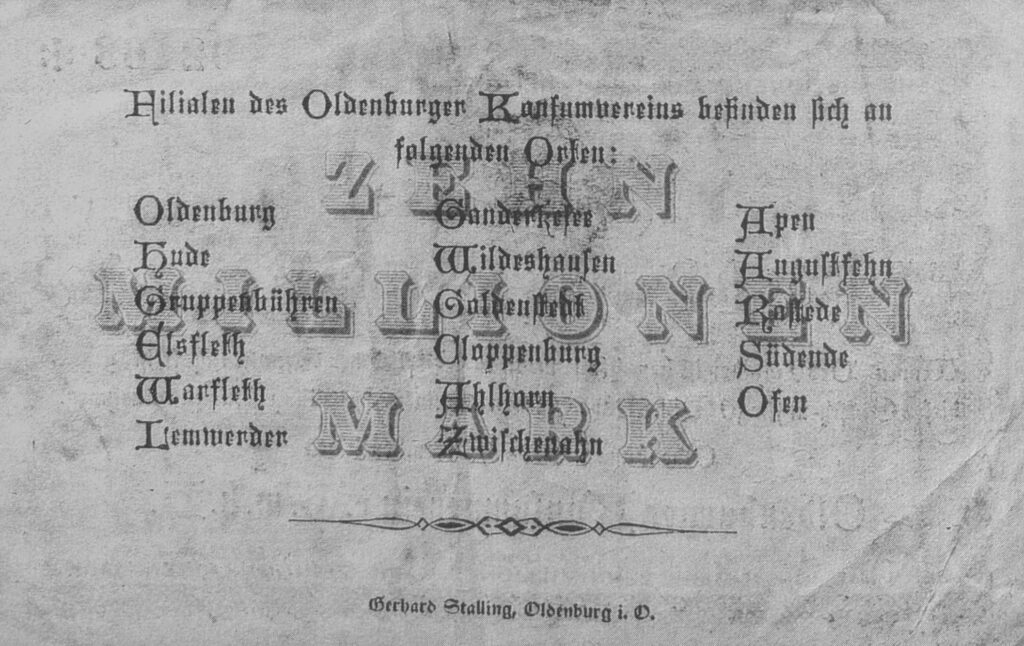 Filialen des Oldenburger Konsumvereins befinden sich an
folgenden Orten:
Oldenburg
Hude
Gruppenbühren
Elsfleth
Warfleth
Lemwerder
Ganderkesee
Wildeshausen
Goldenstedt
Cloppenburg
Ahlhorn
Zwischenahn
Apen
Augustfehn
Rastede
Südende
Ofen
ZEHN
MILLIONEN
MARK
Gerhard Stalling, Oldenburg i. O.